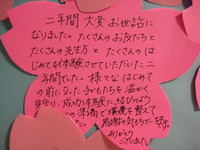 二年間大変お世話に
なりました。たくさんのお友だちと
たくさんの先生方とたくさんのは
じめてを体験させていただいた二
年間でした。様々なはじめて
の前になった子どもたちを温かく
見守り、成功体験に結びつよう
の準備で環境を整えて
感謝の気もちで一杯です。
ありがとう
ございました!